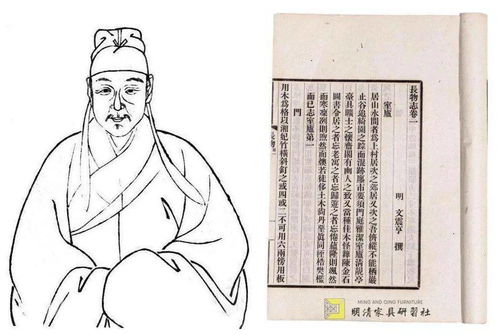 長物志卷一
明 文震亨 撰
室廬
居山水間者為上村居次之郊居又次之吾儕縱不能栖巖
止谷追綺園之踪而混跡廛市要須門庭雅潔室廬清靚亭
臺具曠士之懷齋閣有幽人之致又當種佳木怪籜陳金石
圖書令居之者忘老寓之者忘歸遊之者忘倦蘊隆則颯然
而寒凜冽則煦然而燠若徒侈土木尚丹堊真同桎梏樊檻
而已志室廬第一
門
用木為格以湘妃竹橫斜釘之或四或二不可用六兩傍用板
MING AND QING FURNITURE
明清家具研習社